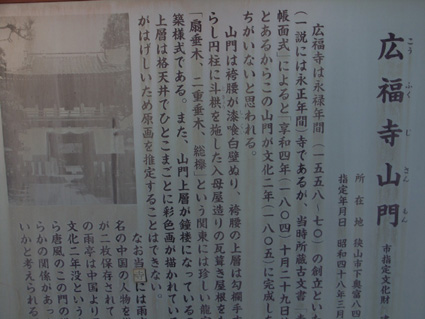 こう ふく じ さん もん
広福寺山門
市指定文化財
所在地 狭山市下奥富八四
指定年月日 昭和四十八年三月
広福寺は永禄年間(一五五八~七〇)の創立といわ
(一説には永正年間)寺であるが、当時所蔵古文書
帳面式」によると「享和四年(一八〇四)十月二十九日
とあるからこの山門が文化二年(一八〇五)に完成した
ちがいないと思われる。
山門は袴腰が漆喰白壁ぬり、袴腰の上層は勾欄手
らし円柱に斗栱を施した入母屋造りの瓦葺き屋根を
「扇垂木、二重垂木、総欅」という関東には珍しい龍宮
築様式である。また、山門上層が鐘楼になっている
上層は格天井でひとこまごとに彩色画が描かれてい
がはげしいため原画を推定することはできない。
なお当寺には雨
名の中国の人物を
が二枚保存されて
の雨亭は中国より
文化二年没という
ら唐風のこの門の
らかの関係があっ
いかと考えられる